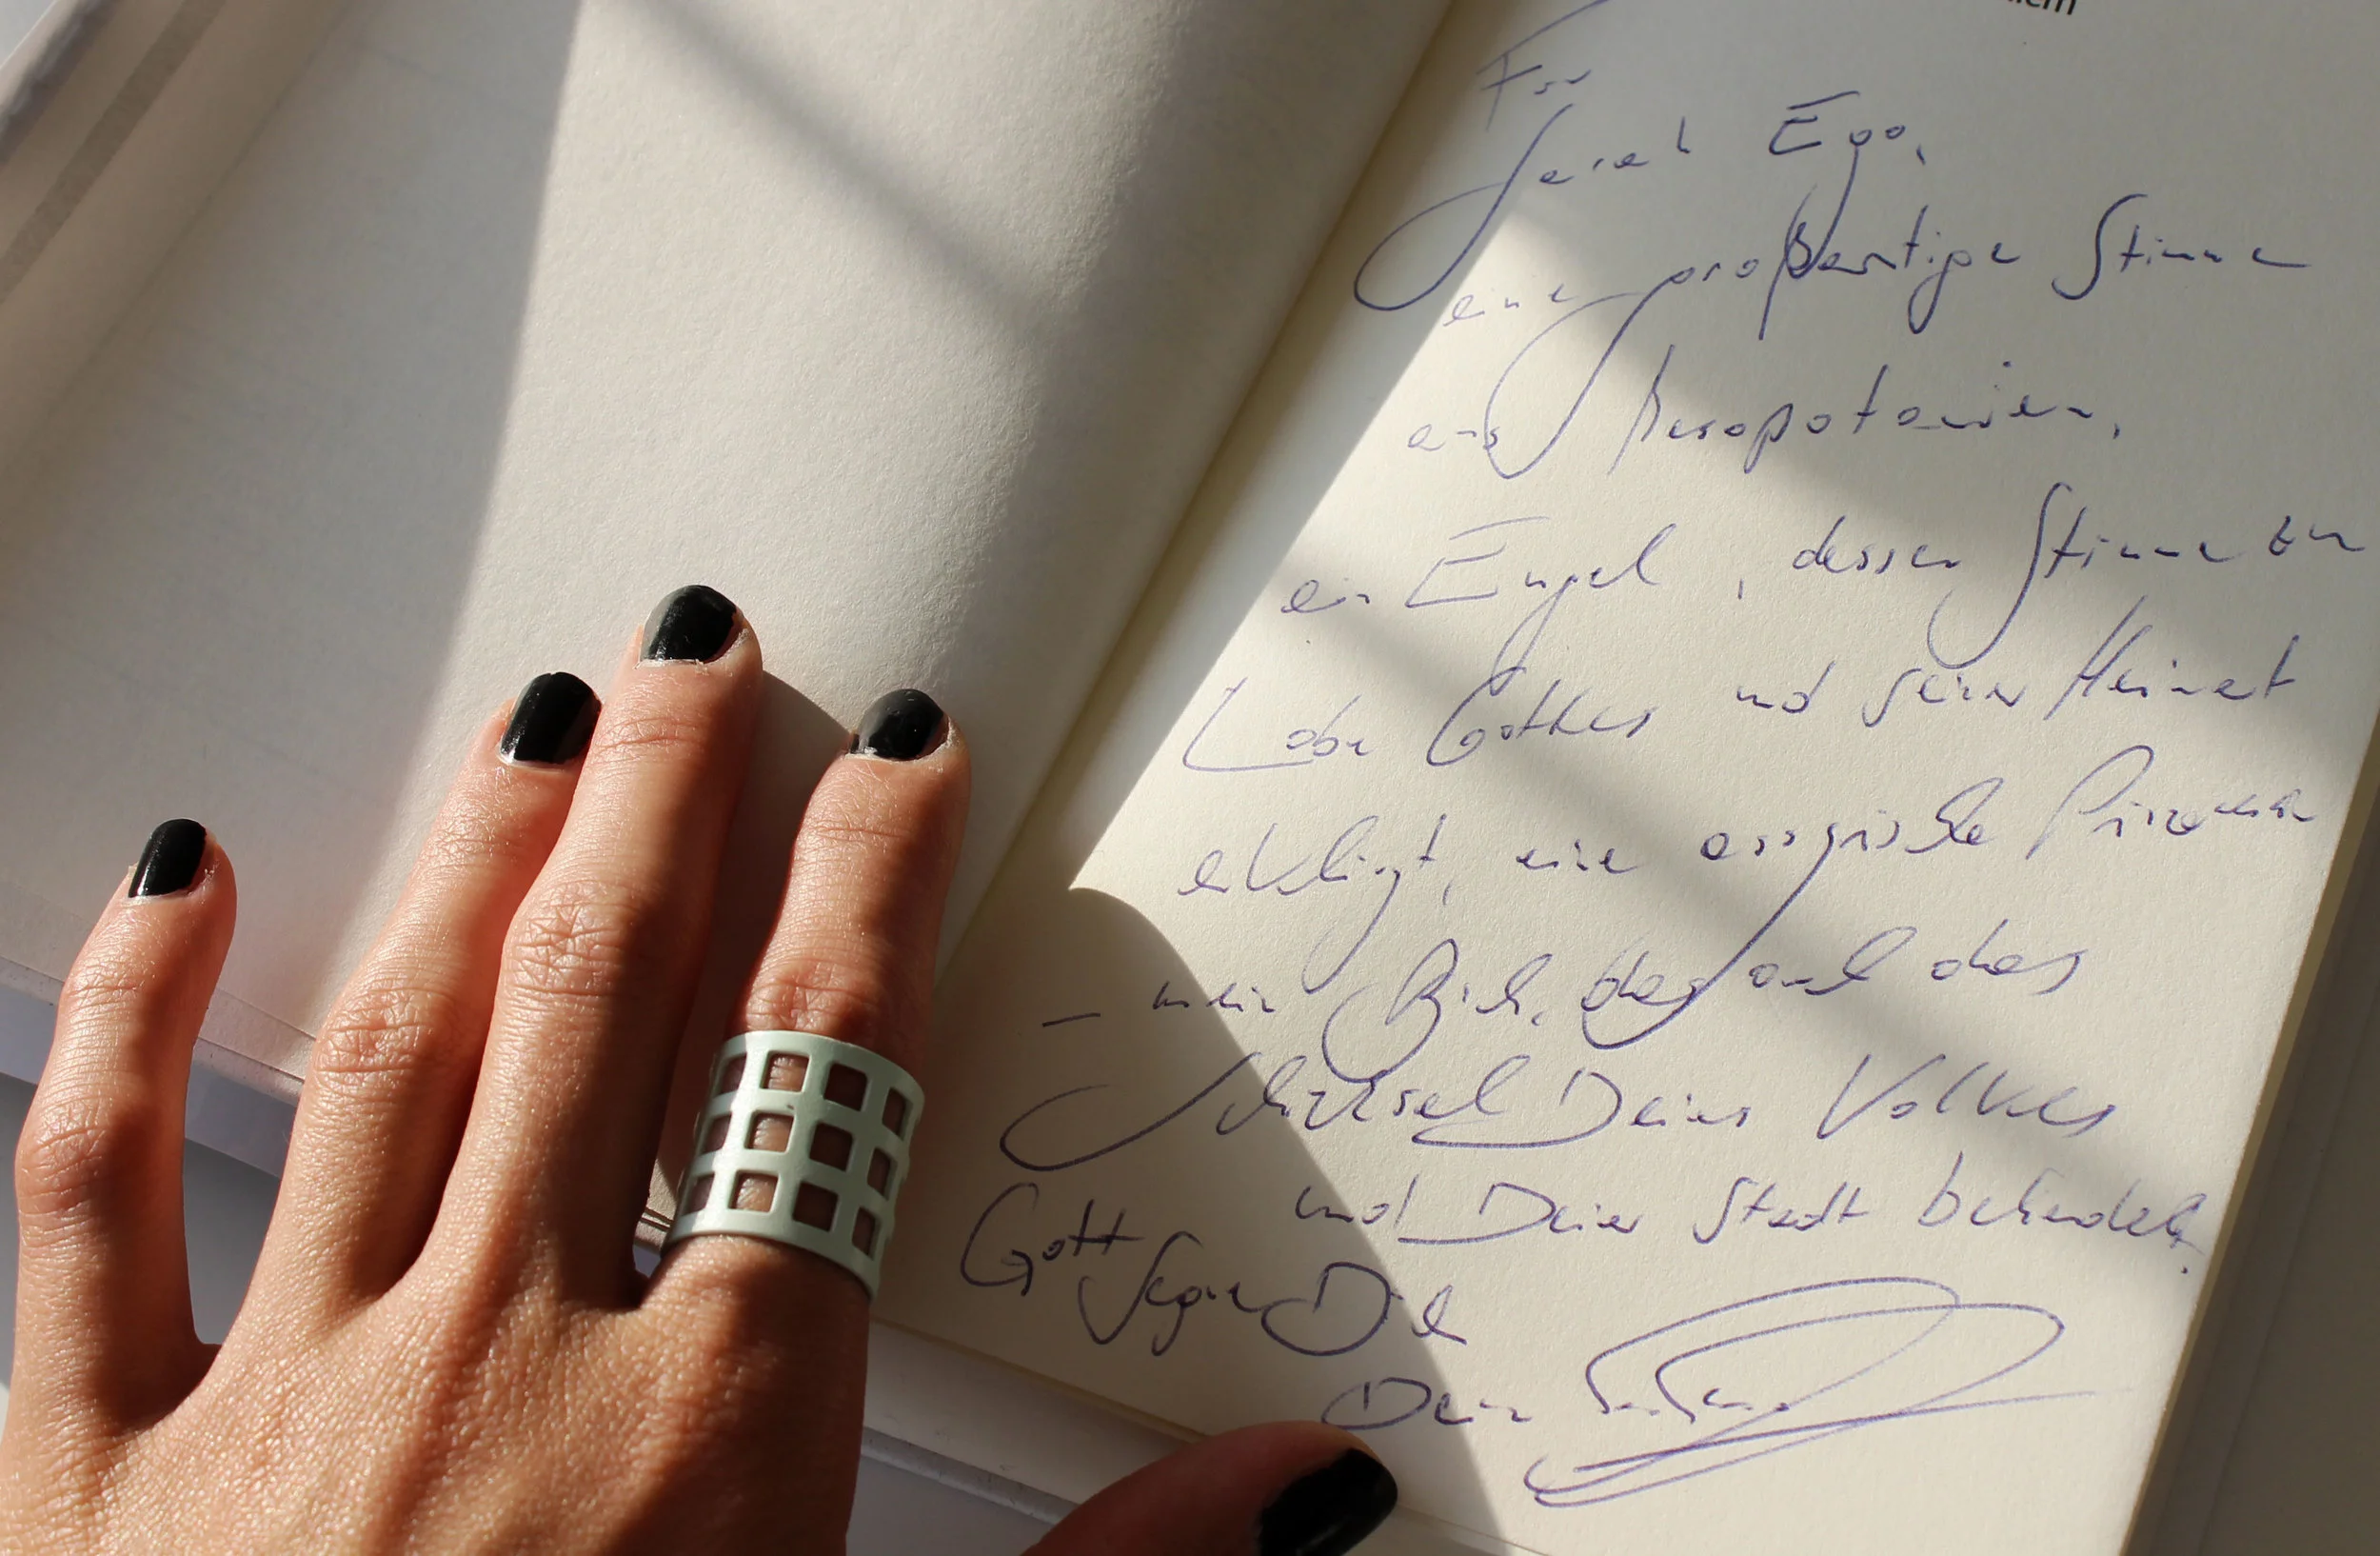 Für
Sarah Ego,
eine großartige Stimme
aus Mesopotamien,
ein Engel, dessen Stimme zum
Lobe Gottes und seiner Heimat
erklingt, eine assyrische Prinzessin
– mein Buch, das auch das
Schicksal Deines Volkes
und Deiner Stadt behandelt.
Gott segne Dich
Dein